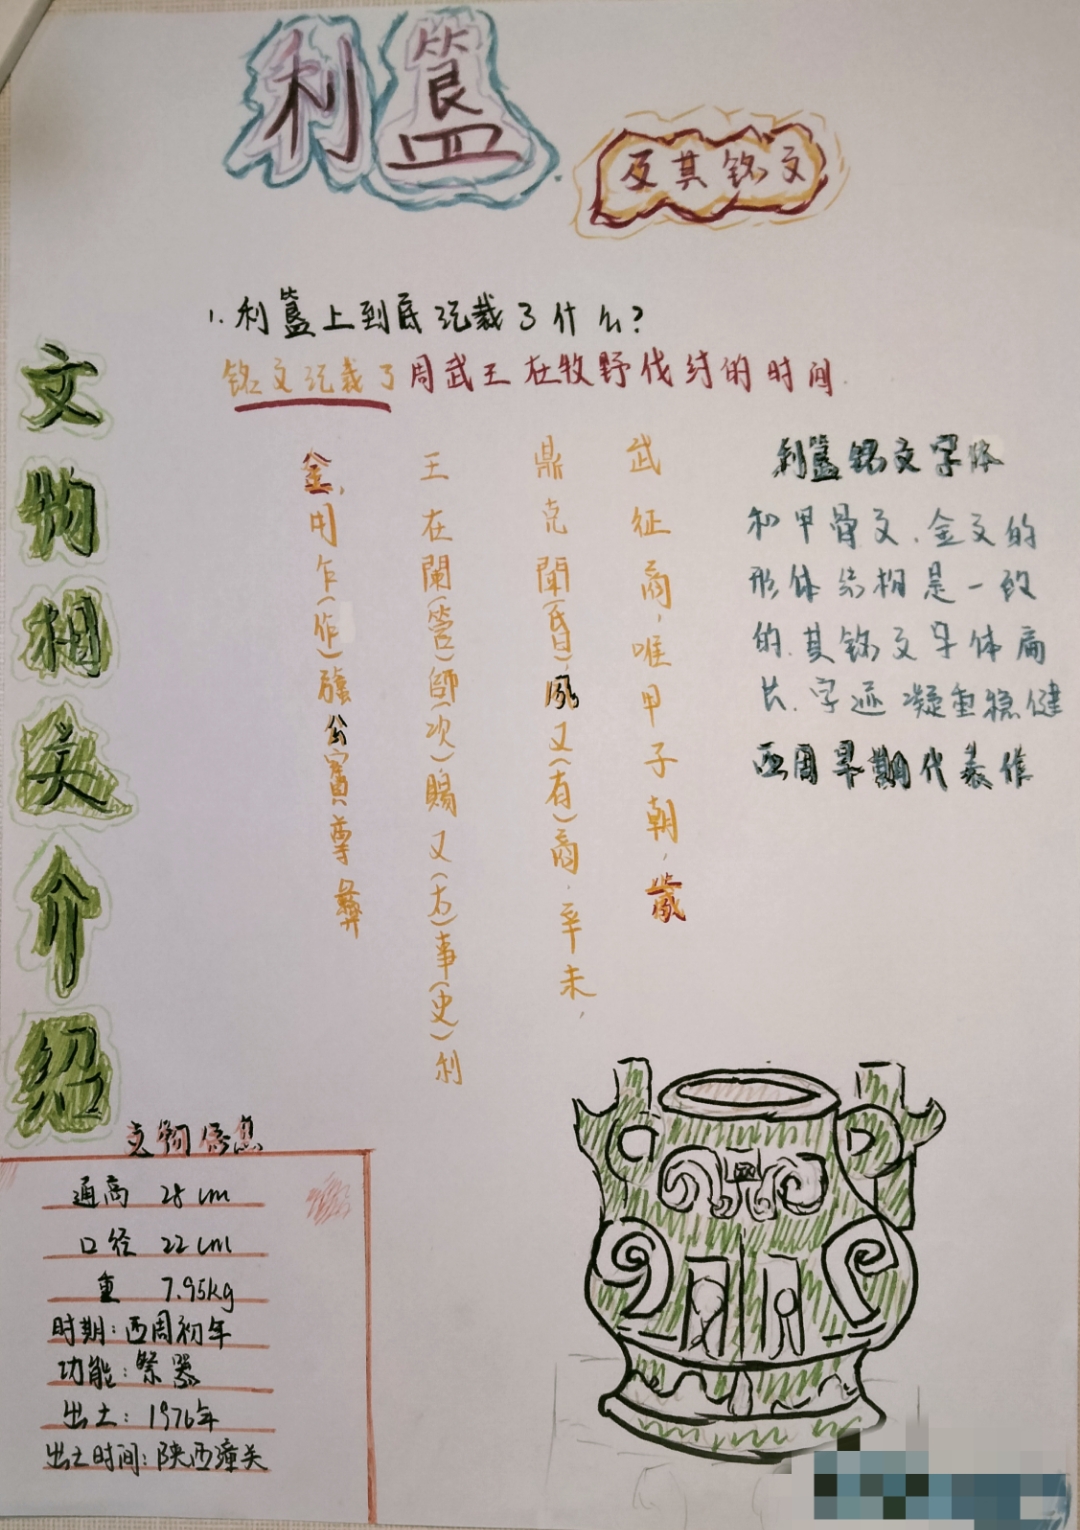 利簋
及其铭文
1.利簋上到底记载了什么?
铭文记载了周武王在牧野伐纣的时间.
文物相关介绍
武征商,唯甲子朝,歲
鼎克聞(昏)夙又(有)商.辛未,
王在闌(管)師(次)賜又(右)事(史)利
金,用乍(作)公寶尊彝
利簋铭文字体
和甲骨文、金文的
形体结构是一致
的.其铭文字体扁
长.字迹凝重稳健
西周早期代表作
文物信息
通高 28cm
口径 22cm
重 7.95kg
时期:西周初年
功能:祭器
出土:1976年
出土时间:陕西潼关